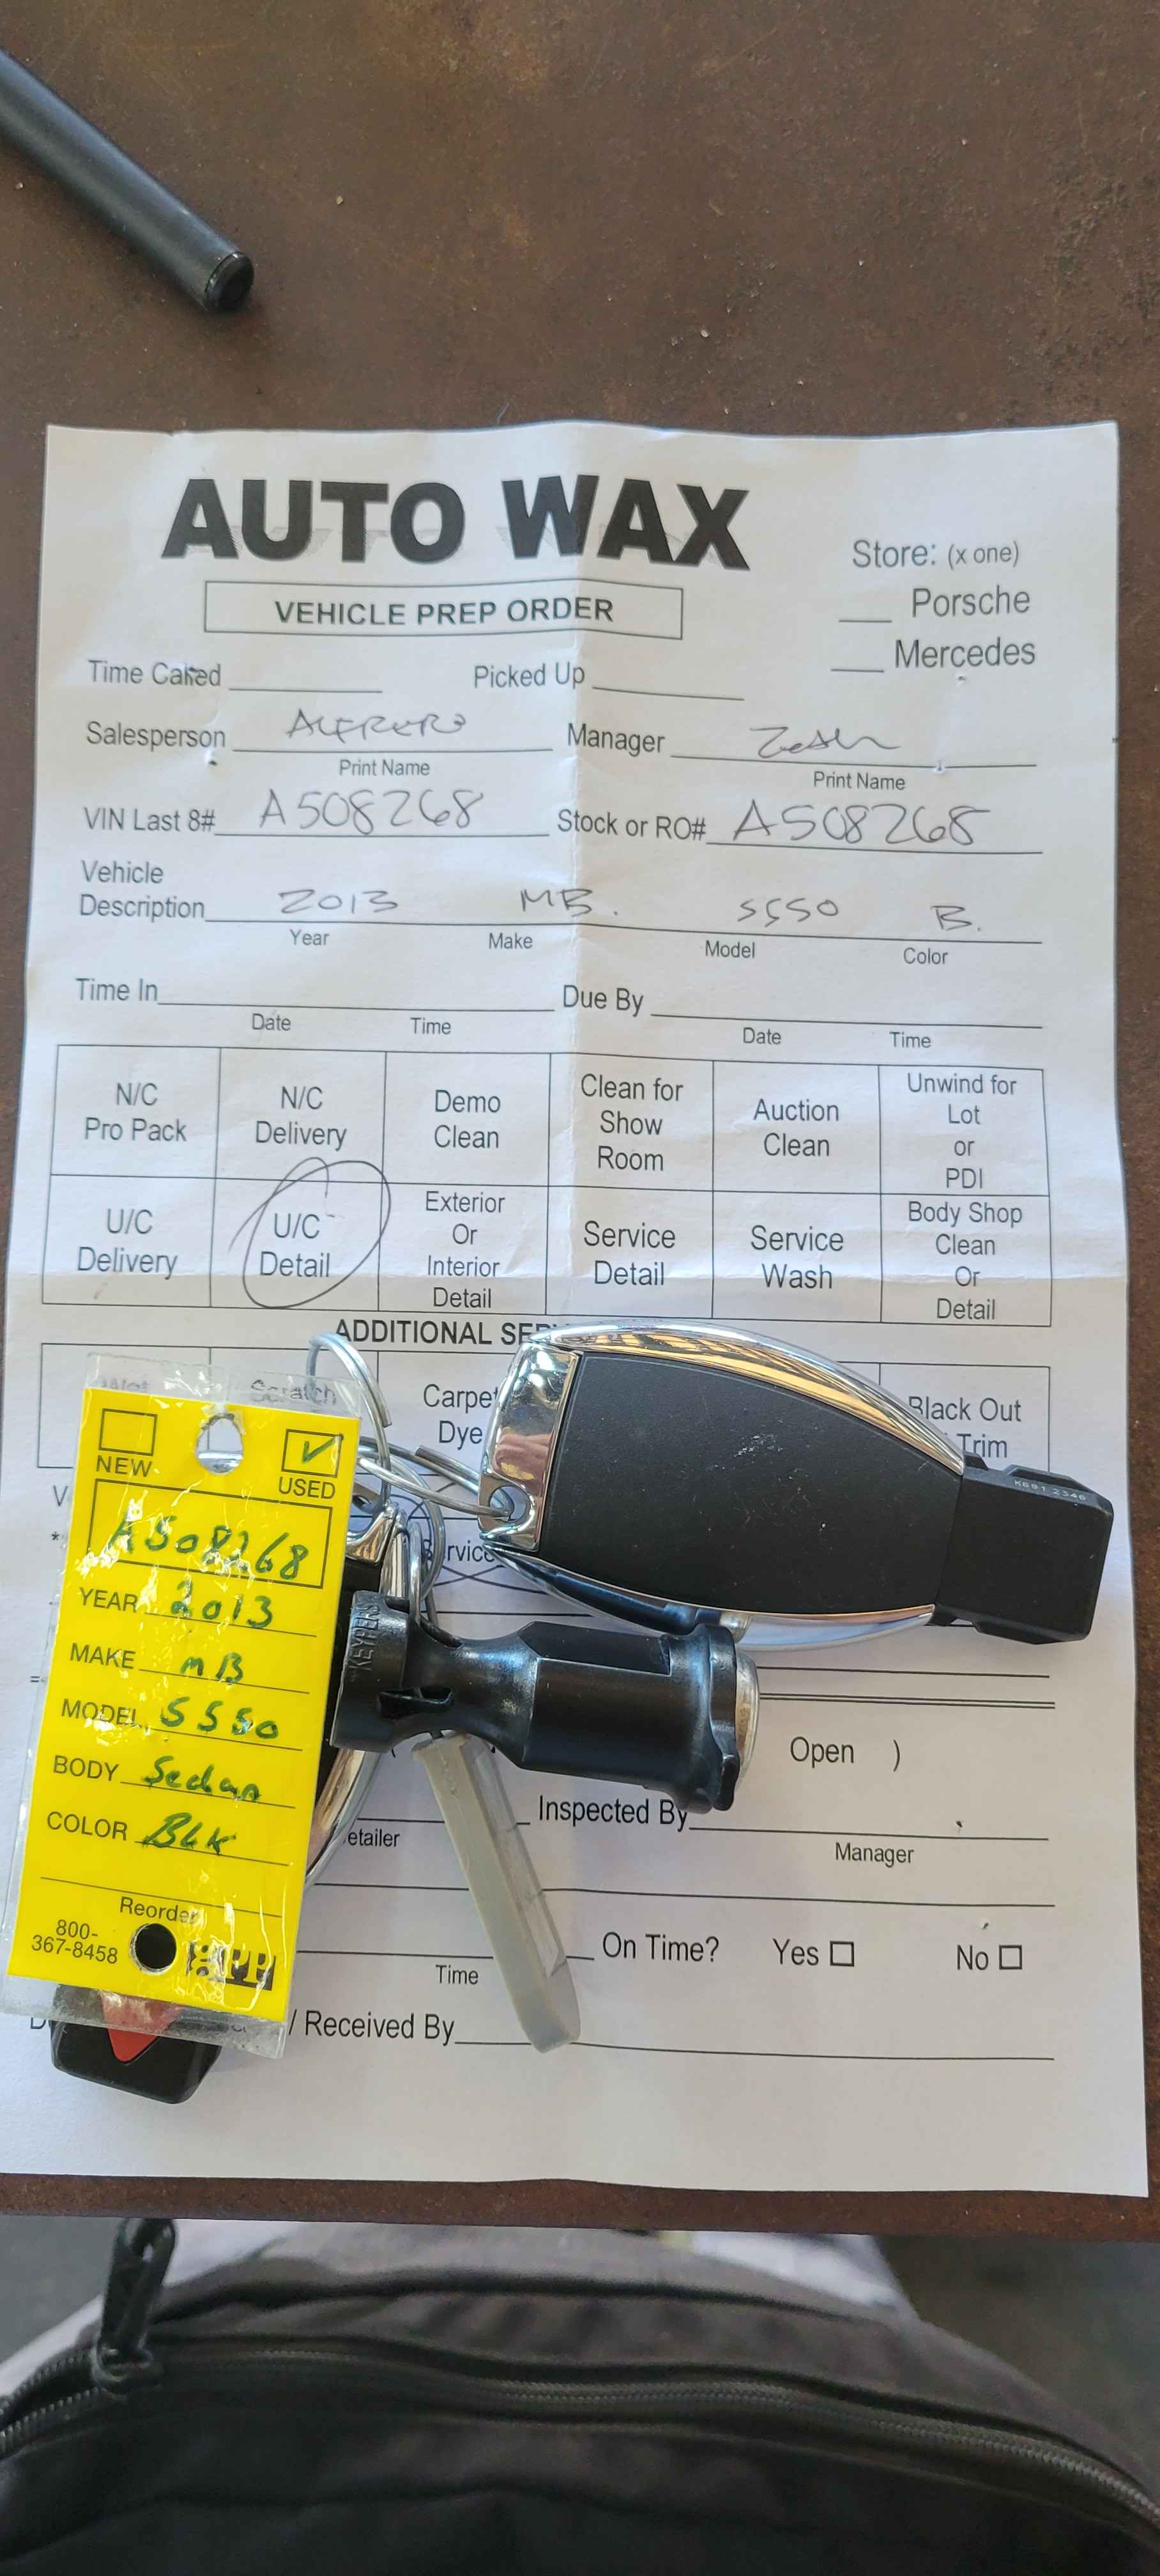 AUTO WAX
VEHICLE PREP ORDER
Store: (x one)
Porsche
Mercedes
Time Called Picked Up
Salesperson ALFREDO Manager
Print Name Print Name
VIN Last 8# A508268 Stock or RO# A508268
Vehicle
Description 2013 MB. S550 B.
Year Make Model Color
Time In Due By
Date Time Date Time
N/C
Pro Pack
N/C
Delivery
Demo
Clean
Clean for
Show
Room
Auction
Clean
Unwind for
Lot
or
PDI
U/C
Delivery
U/C
Detail
Exterior
Or
Interior
Detail
Service
Detail
Service
Wash
Body Shop
Clean
Or
Detail
ADDITIONAL SE
Wet
Scratch
Carpe
Dye
Black Out
Trim
NEW
USED
A508268
YEAR 2013
MAKE MB
MODEL S550
BODY Sedan
COLOR BLK
Reorder
800-
367-8458
gFP
KEYPER
K691 2346
V
*
ervice
Open )
Inspected By
etailer
Manager
On Time? Yes No
Time
D
/ Received By